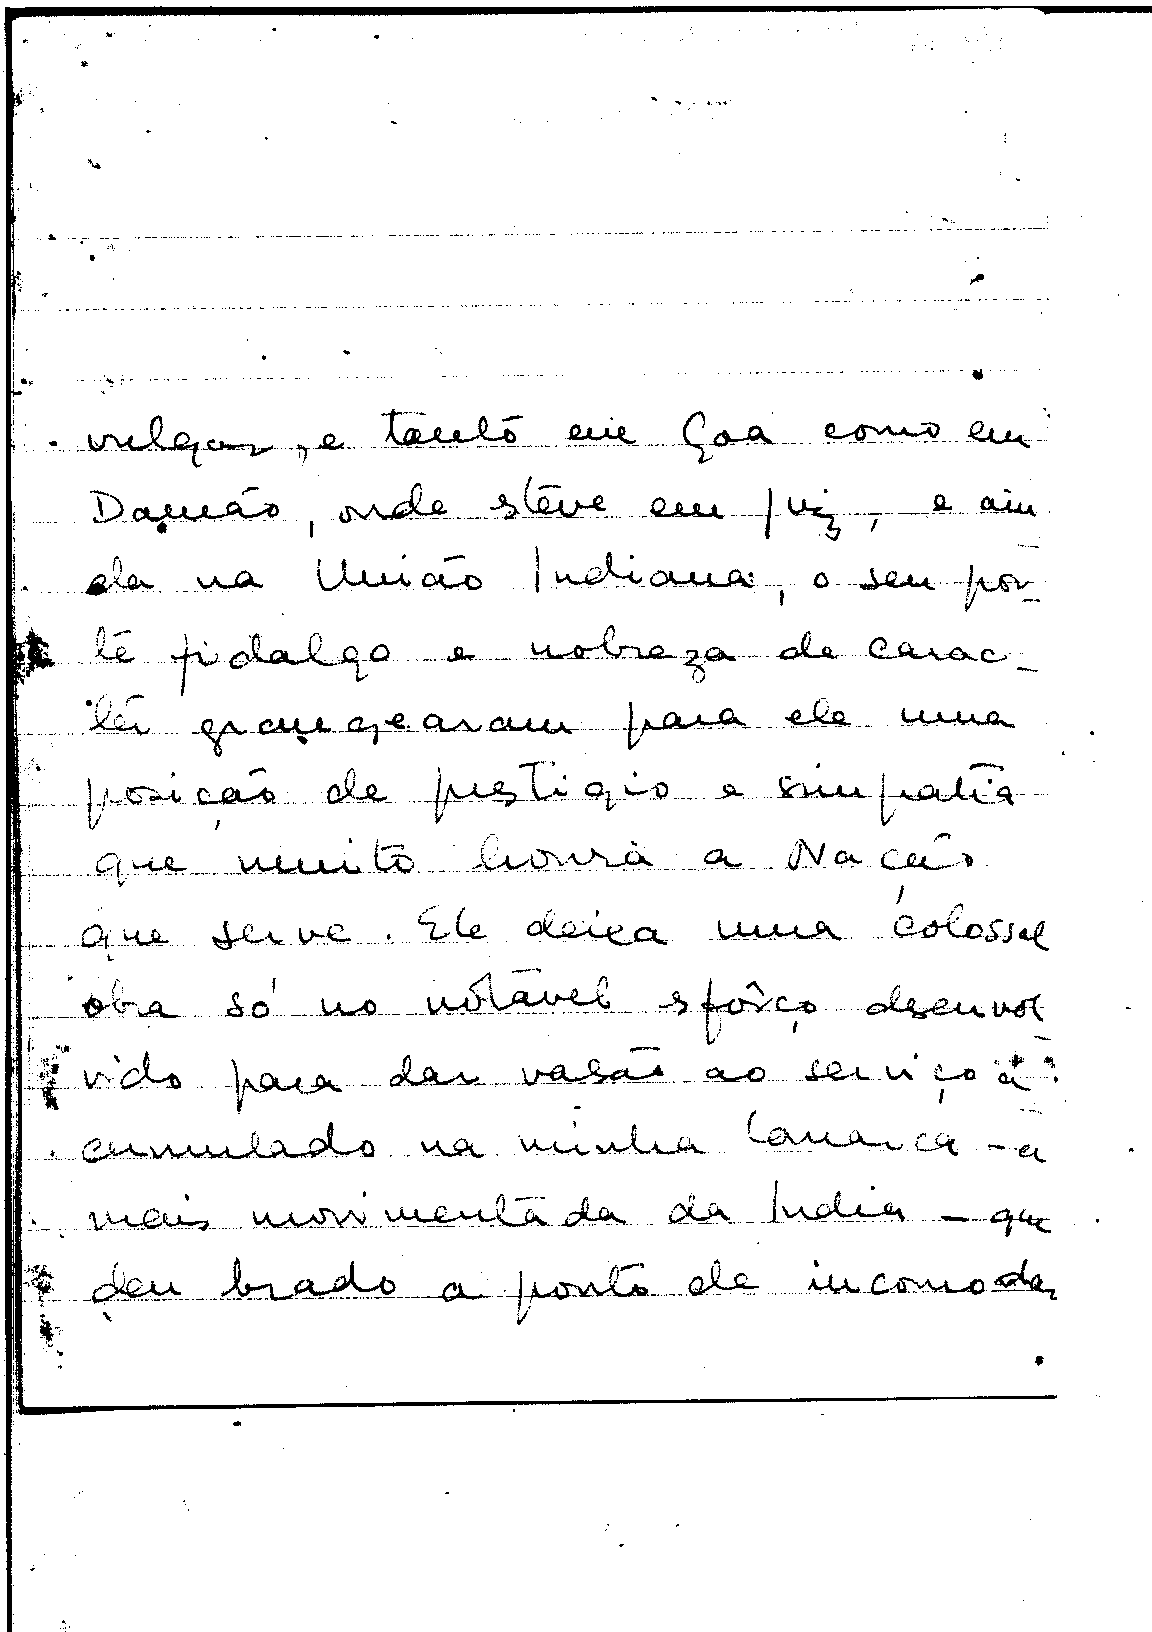 vulgar, e tanto em Goa como em
Damão, onde steve em juiz, e ain
da na União Indiana, o seu por-
te fidalgo e nobreza de carac-
ter grangearam para ele uma
posição de prestigio e simpatia
que muito honra a Nação
que serve. Ele deixa uma colossal
obra só no notável sforço desenvol
vido para dar vasão ao serviço a
cumulado na minha Comarca - a
mais movimentada da India - que
deu brado a ponto de incomodar